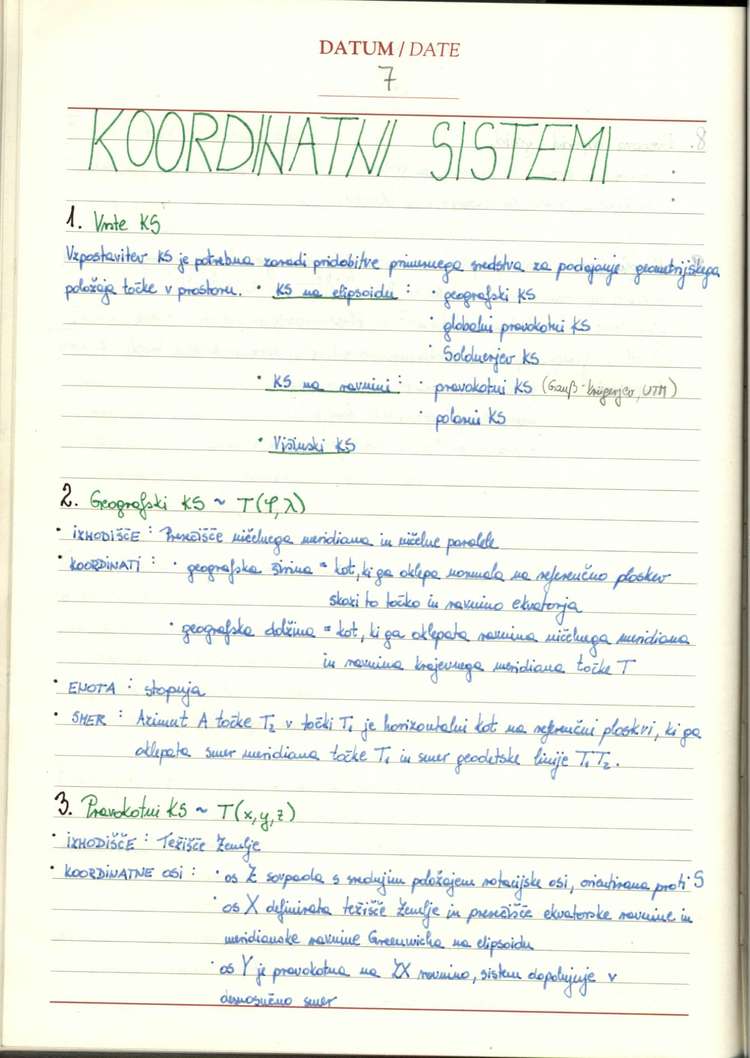 DATUM / DATE
7
KOORDINATNI SISTEMI
1. Vrste KS
Vzpostavitev KS je potrebna zaradi pridobitve primernega sredstva za podajanje geometrijskega
položaja točke v prostoru. • KS na elipsoidu : • geografski KS
• globalni pravokotni KS
• Soldnerjev KS
• KS na ravnini : • pravokotni KS (Gauß-Krügerjev, UTM)
• polarni KS
• Višinski KS
2. Geografski KS ~ T(φ,λ)
• IZHODIŠČE : Presečišče ničelnega meridiana in ničelne paralele
• KOORDINATI : • geografska širina = kot, ki ga oklepa normala na referenčno ploskev
skozi to točko in ravnino ekvatorja
• geografska dolžina = kot, ki ga oklepata ravnina ničelnega meridiana
in ravnina krajevnega meridiana točke T
• ENOTA : stopinja
• SMER : Azimut A točke T₂ v točki T₁ je horizontalni kot na referenčni ploskvi, ki ga
oklepata smer meridiana točke T₁ in smer geodetske linije T₁T₂.
3. Pravokotni KS ~ T(x,y,z)
• IZHODIŠČE : Težišče Zemlje
• KOORDINATNE OSI : • os Z sovpada s srednjim položajem rotacijske osi, orientirana proti S
• os X definirata težišče Zemlje in presečišče ekvatorske ravnine in
meridianske ravnine Greenwicha na elipsoidu
• os Y je pravokotna na ZX ravnino, sistem dopolnjuje v
desnosučno smer